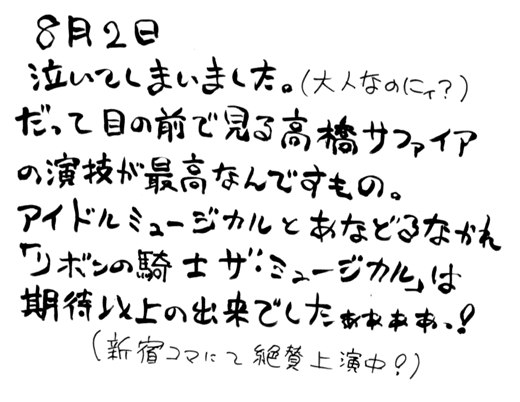 8月2日
泣いてしまいました。(大人なのにィ?)
だって目の前で見る高橋サファイア
の演技が最高なんですもの。
アイドルミュージカルとあなどるなかれ
「リボンの騎士ザ・ミュージカル」は
期待以上の出来でしたぁぁぁぁっ!
(新宿コマにて絶賛上演中!)